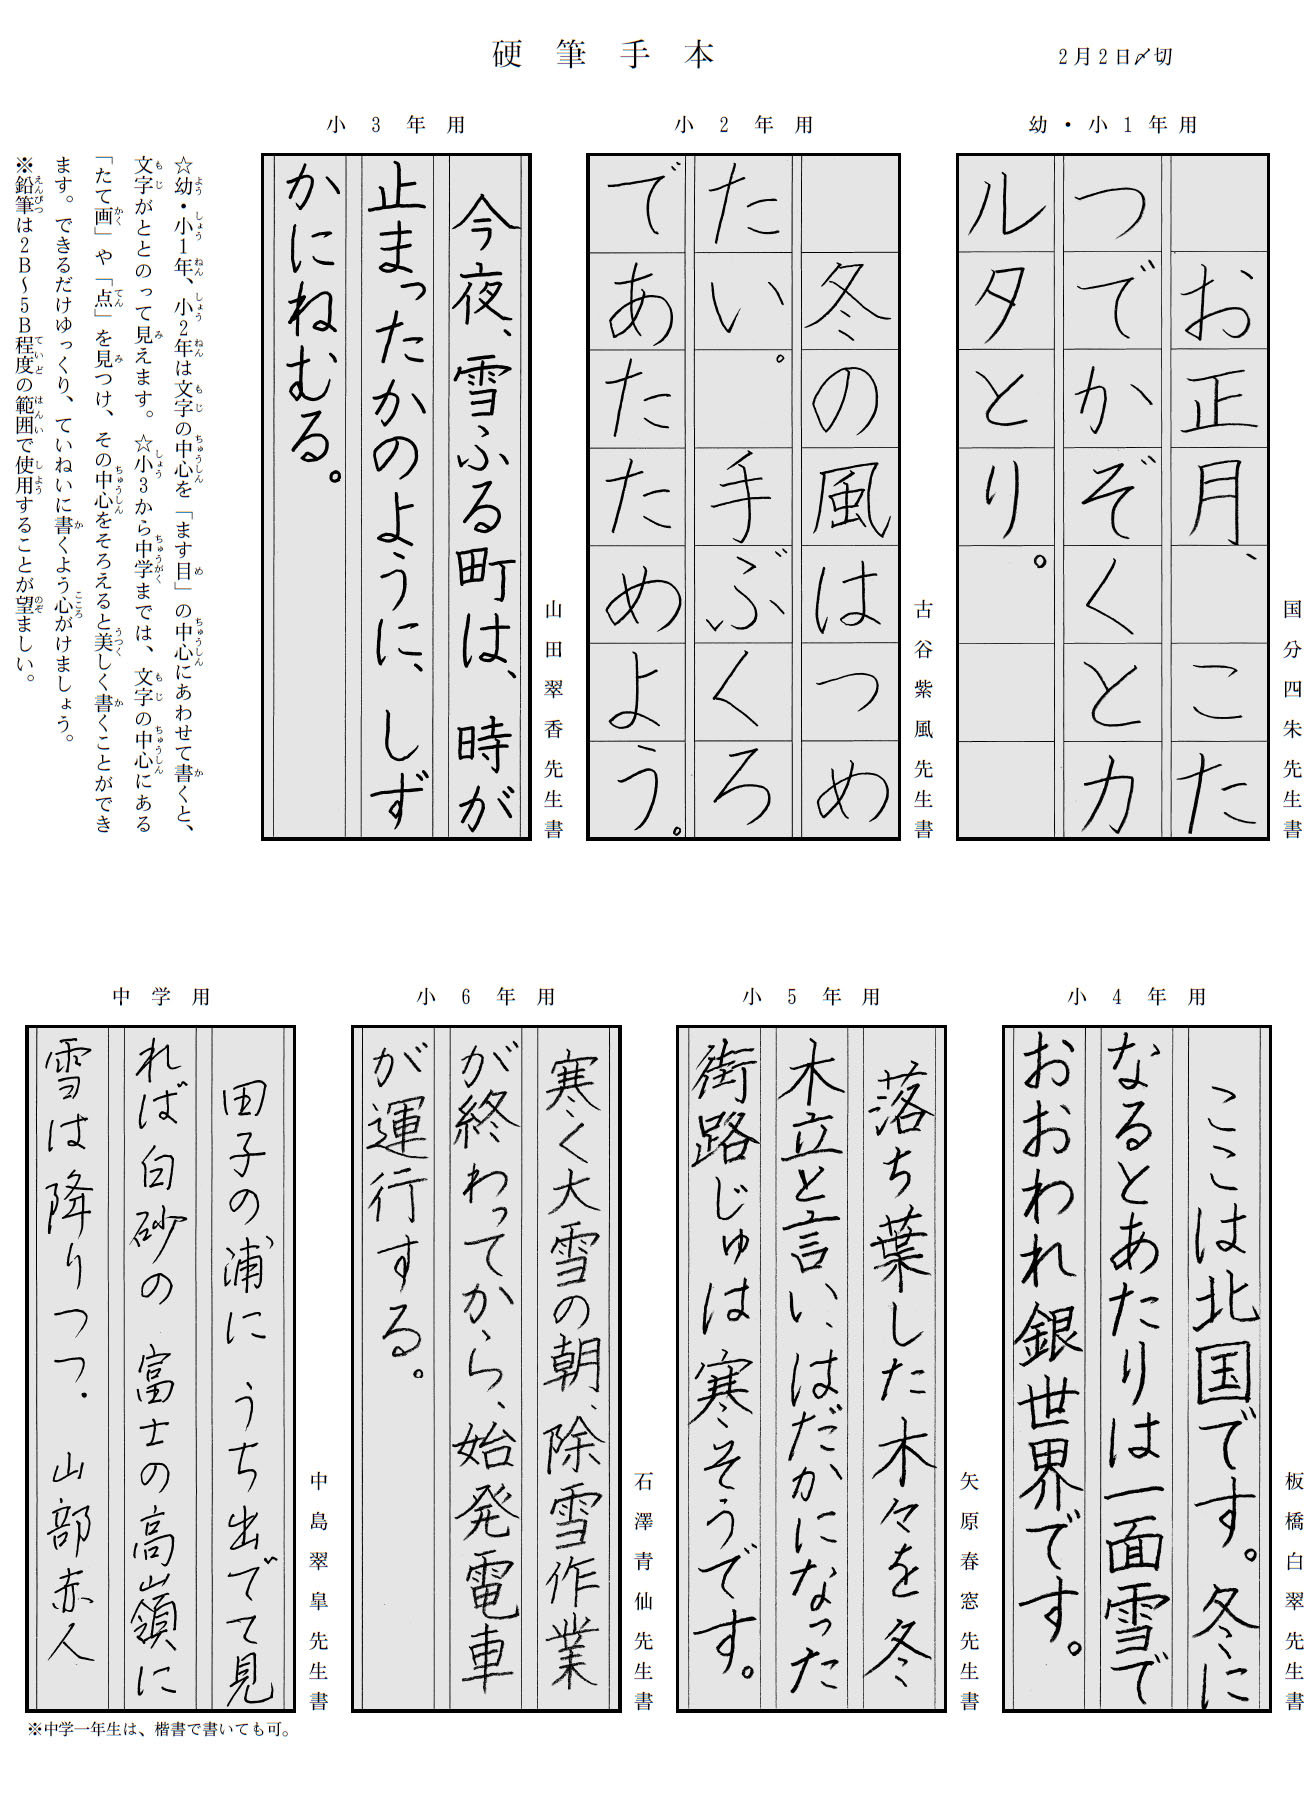 硬筆手本
2月2日〆切
幼・小1年用
お正月、こた
つでかぞくとカ
ルタとり。
国分四朱先生書
小2年用
冬の風はつめ
たい。手ぶくろ
であたためよう。
古谷紫風先生書
小3年用
今夜、雪ふる町は、時が
止まったかのように、しず
かにねむる。
山田翠香先生書
☆幼・小1年、小2年は文字の中心を「ます目」の中心にあわせて書くと、
文字がととのって見えます。☆小3から中学までは、文字の中心にある
「たて画」や「点」を見つけ、その中心をそろえると美しく書くことができ
ます。できるだけゆっくり、ていねいに書くよう心がけましょう。
※鉛筆は2B～5B程度の範囲で使用することが望ましい。
小4年用
ここは北国です。冬に
なるとあたりは一面雪で
おおわれ銀世界です。
板橋白翠先生書
小5年用
落ち葉した木々を冬
木立と言い、はだかになった
街路じゅは寒そうです。
矢原春窓先生書
小6年用
寒く大雪の朝、除雪作業
が終わってから、始発電車
が運行する。
石澤青仙先生書
中学用
田子の浦に うち出でて見
れば白砂の 富士の高嶺に
雪は降りつつ. 山部赤人
中島翠皐先生書
※中学一年生は、楷書で書いても可。